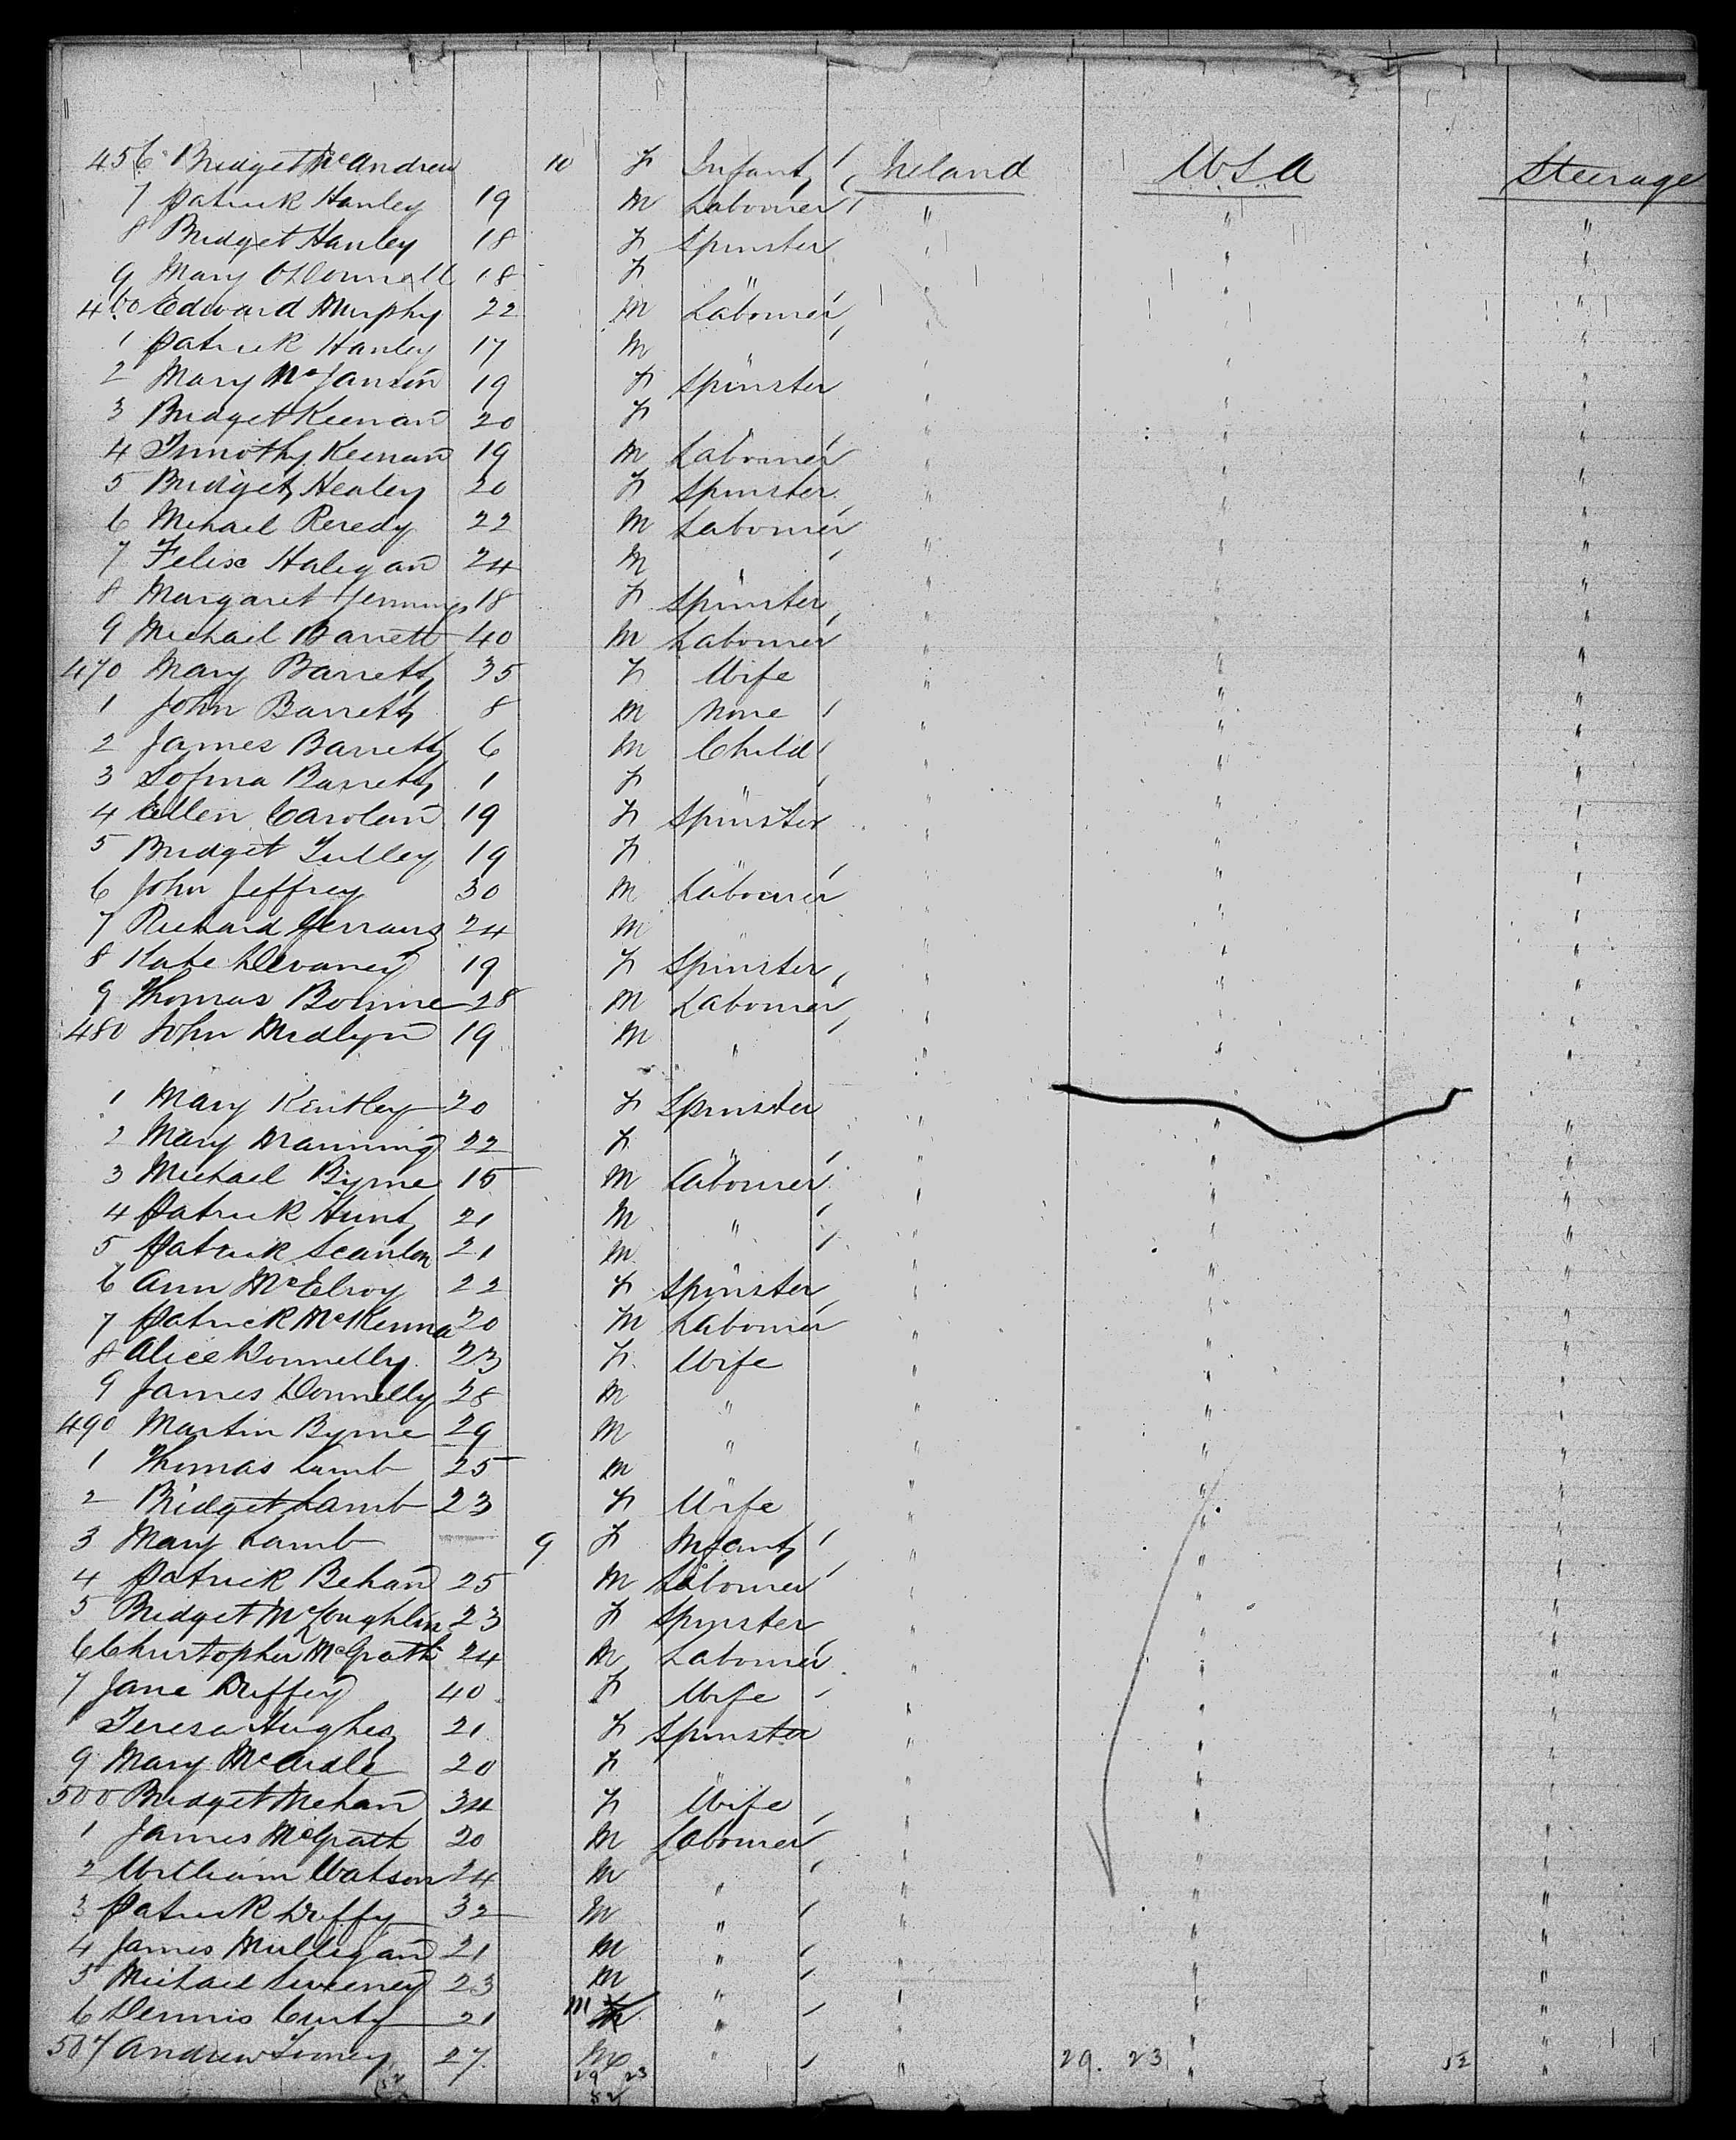 456 Bridget McAndrew 10 F Infant Ireland USA Steerage
7 Patrick Hanley 19 M Labourer " " "
8 Bridget Hanley 18 F Spinster " " "
9 Mary O'Donnell 18 F " " " "
460 Edward Murphy 22 M Labourer " " "
1 Patrick Hanley 17 M " " " "
2 Mary 19 F Spinster " " "
3 Bridget Keenan 20 F " " " "
4 Timothy Keenan 19 M Labourer " " "
5 Bridget Healey 20 F Spinster " " "
6 Michael Reredy 22 M Labourer " " "
7 Felix Haligan 24 M " " " "
8 Margaret Jennings 18 F Spinster " " "
9 Michael Barrett 40 M Labourer " " "
470 Mary Barrett 35 F Wife " " "
1 John Barrett 8 M None " " "
2 James Barrett 6 M Child " " "
3 Barrett 1 F " " " "
4 Ellen Carolan 19 F Spinster " " "
5 Bridget Tulley 19 F " " " "
6 John Jeffrey 30 M Labourer " " "
7 Richard 24 M " " " "
8 Kate Devaney 19 F Spinster " " "
9 Thomas 28 M Labourer " " "
480 John Medlyn 19 M " " " "
1 Mary 20 F Spinster " " "
2 Mary Manning 22 F " " " "
3 Michael Byrne 15 M Labourer " " "
4 Patrick Hunt 21 M " " " "
5 Patrick Scanlon 21 M " " "
6 Ann McElroy 22 F Spinster " " "
7 Patrick McKenna 20 M Labourer " " "
8 Alice Donnelly 23 F Wife " " "
9 James Donnelly 28 M " " " "
490 Martin Byrne 29 M " " " "
1 Thomas Lamb 25 M " " " "
2 Bridget Lamb 23 F Wife " " "
3 Mary Lamb 9 F Infant " " "
4 Patrick Behan 25 M Labourer " " "
5 Bridget McLoughlin 23 F Spinster " " "
6 Christopher McGrath 24 M Labourer " " "
7 Jane Duffey 40 F Wife " " "
Teresa Hughes 21 F Spinster " " "
9 Mary McArdle 20 F " " " "
500 Bridget Mehan 34 F Wife " " "
1 James McGrath 20 M Labourer " " "
2 William Watson 24 M " " " "
3 Patrick Duffy 32 M " " " "
4 James Mulligan 21 M " " " "
5 Michael Sweeney 23 M " " " "
6 Dennis 21 M " " " "
507 Andrew 27 M " " 29. 23 " 52 "
29 23
52